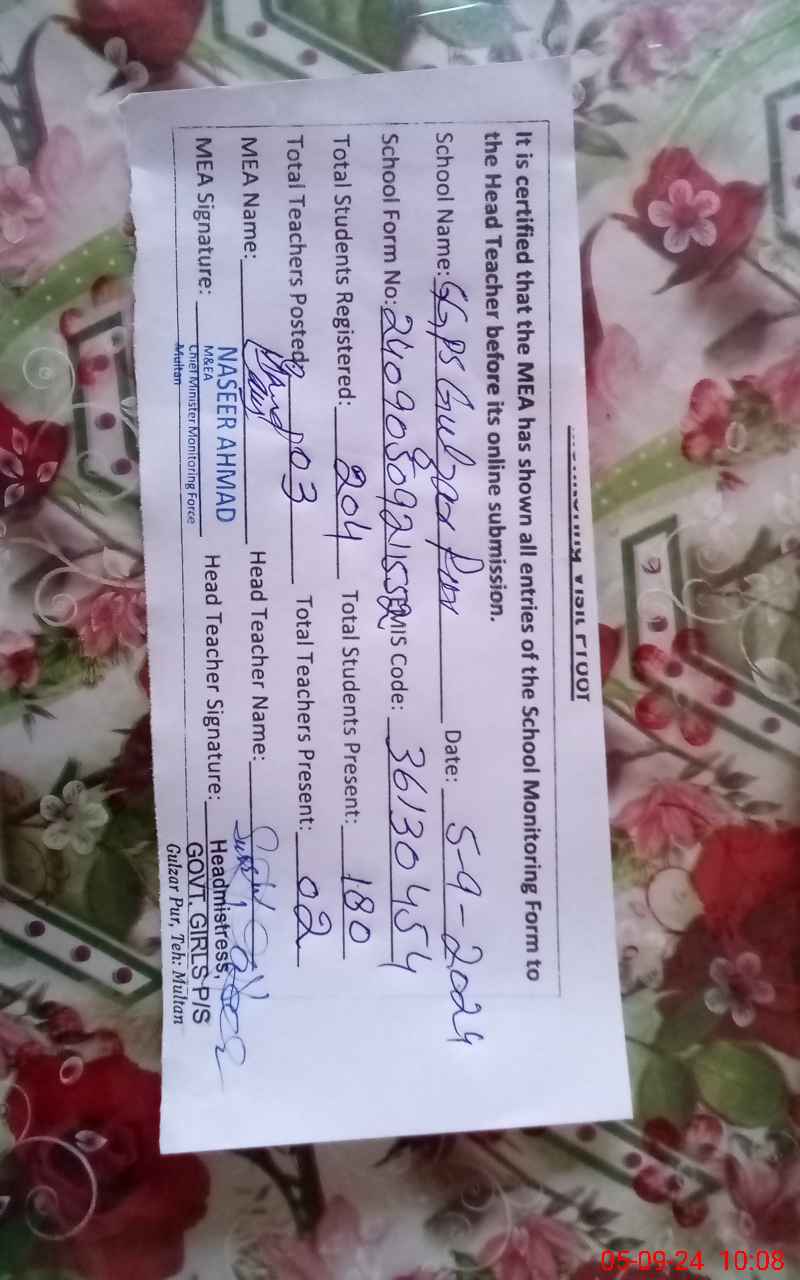 Visit Proof
It is certified that the MEA has shown all entries of the School Monitoring Form to
the Head Teacher before its online submission.
School Name: GGPS Gulzar Pur Date: 5-9-2024
School Form No: EMIS Code: 36130454
Total Students Registered: 204 Total Students Present: 180
Total Teachers Posted: 03 Total Teachers Present: 02
MEA Name: Head Teacher Name:
NASEER AHMAD
M&EA
Chief Minister Monitoring Force
Multan
MEA Signature: Head Teacher Signature:
Headmistress,
GOVT. GIRLS P/S
Gulzar Pur, Teh: Multan
05-09-24 10:08